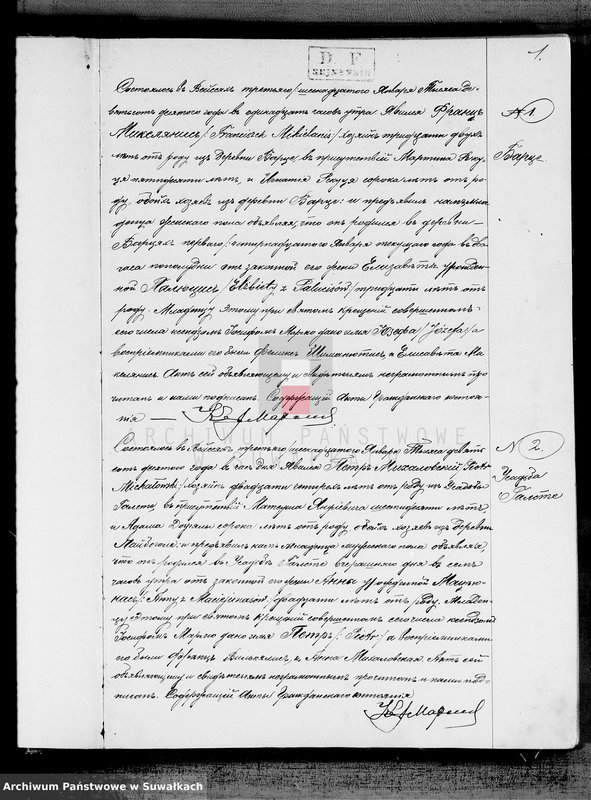 D F
SEJNENSIS
1.
№ 1
Барце
Состоялось въ Вейсеяхъ третьяго /шестнадцатаго Января Тысяча де-
вятьсотъ десятаго года въ одинадцать часовъ утра. Явился Францъ
Микелянисъ /: Franciszek Mikielanis :/ хозяинъ тридцати двухъ
лѣтъ отъ роду изъ деревни Барце, въ присутствіи Мартина
пятидесяти лѣтъ, и Игнатія сорока лѣтъ отъ ро-
ду, обоихъ хозяевъ изъ деревни Барце: и предъявилъ намъ мла-
денца женскаго пола объявляя, что онъ родился въ деревни
Барцяхъ перваго /: четырнадцатаго Января текущаго года въ два
часа пополудни отъ законной его жены Елизаветы, урожден-
ной Палюцисъ /: Elżbiety z Palucisów :/ тридцати лѣтъ отъ
роду. Младенцу этому при святомъ крещеніи совершенномъ
сего числа ксендзомъ Іосифомъ дано имя Юзефа /: Józefa :/ а
воспріемниками его были Феликсъ и Елисавета Ми-
келянисъ. Актъ сей объявляющему и свидѣтелямъ неграмотнымъ про-
читанъ и нами подписанъ. Содержащій Акты Гражданскаго состоя-
нія
ARCHIWUM PAŃSTWOWE
№ 2.
Усадьба
Галоте
Состоялось въ Вейсеяхъ третьяго /шестнадцатаго Января Тысяча девять-
сотъ десятаго года въ часъ дня. Явился Петръ Михаловскій /: Piotr
Michałowski :/ хозяинъ двадцати четырехъ лѣтъ отъ роду изъ Усадьбы
Галоты, въ присутствіи Матеуша шестидесяти лѣтъ,
и Адама сорока лѣтъ отъ роду обоихъ хозяевъ изъ деревни
и предъявилъ намъ младенца мужескаго пола объявляя,
что онъ родился въ Усадьбѣ Галоте вчерашняго дня въ семь
часовъ утра отъ законной его жены Анны урожденной Мацю-
насъ /: Anny z Maciejunasów :/ двадцати лѣтъ отъ роду. Младен-
цу этому при святомъ крещеніи совершенномъ сего числа ксендзомъ
Іосифомъ дано имя Петръ /: Piotr :/ а воспріемниками
его были Францъ и Анна Михаловская. Актъ сей
объявляющему и свидѣтелямъ неграмотнымъ прочитанъ и нами под-
писанъ. Содержащій Акты Гражданскаго состоянія
Archiwum Państwowe w Suwałkach